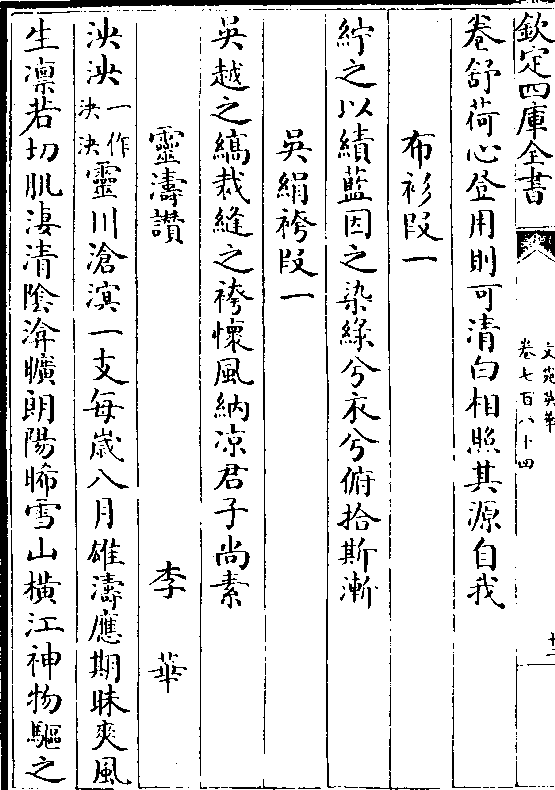 欽定四庫全書
文苑英華
卷七百八十四
十二
卷舒荷心登用則可清白相照其源自我
布衫段一
紵之以績藍因之染綠兮衣兮俯拾斯漸
吳絹袴段一
吳越之縞裁縫之袴懷風納凉君子尚素
靈濤讃 李華
泱泱一作決決靈川滄溟一支每歲八月雄濤應期昧爽風
生凛若切肌淒清陰渰曠朗陽晞雪山橫江神物驅之